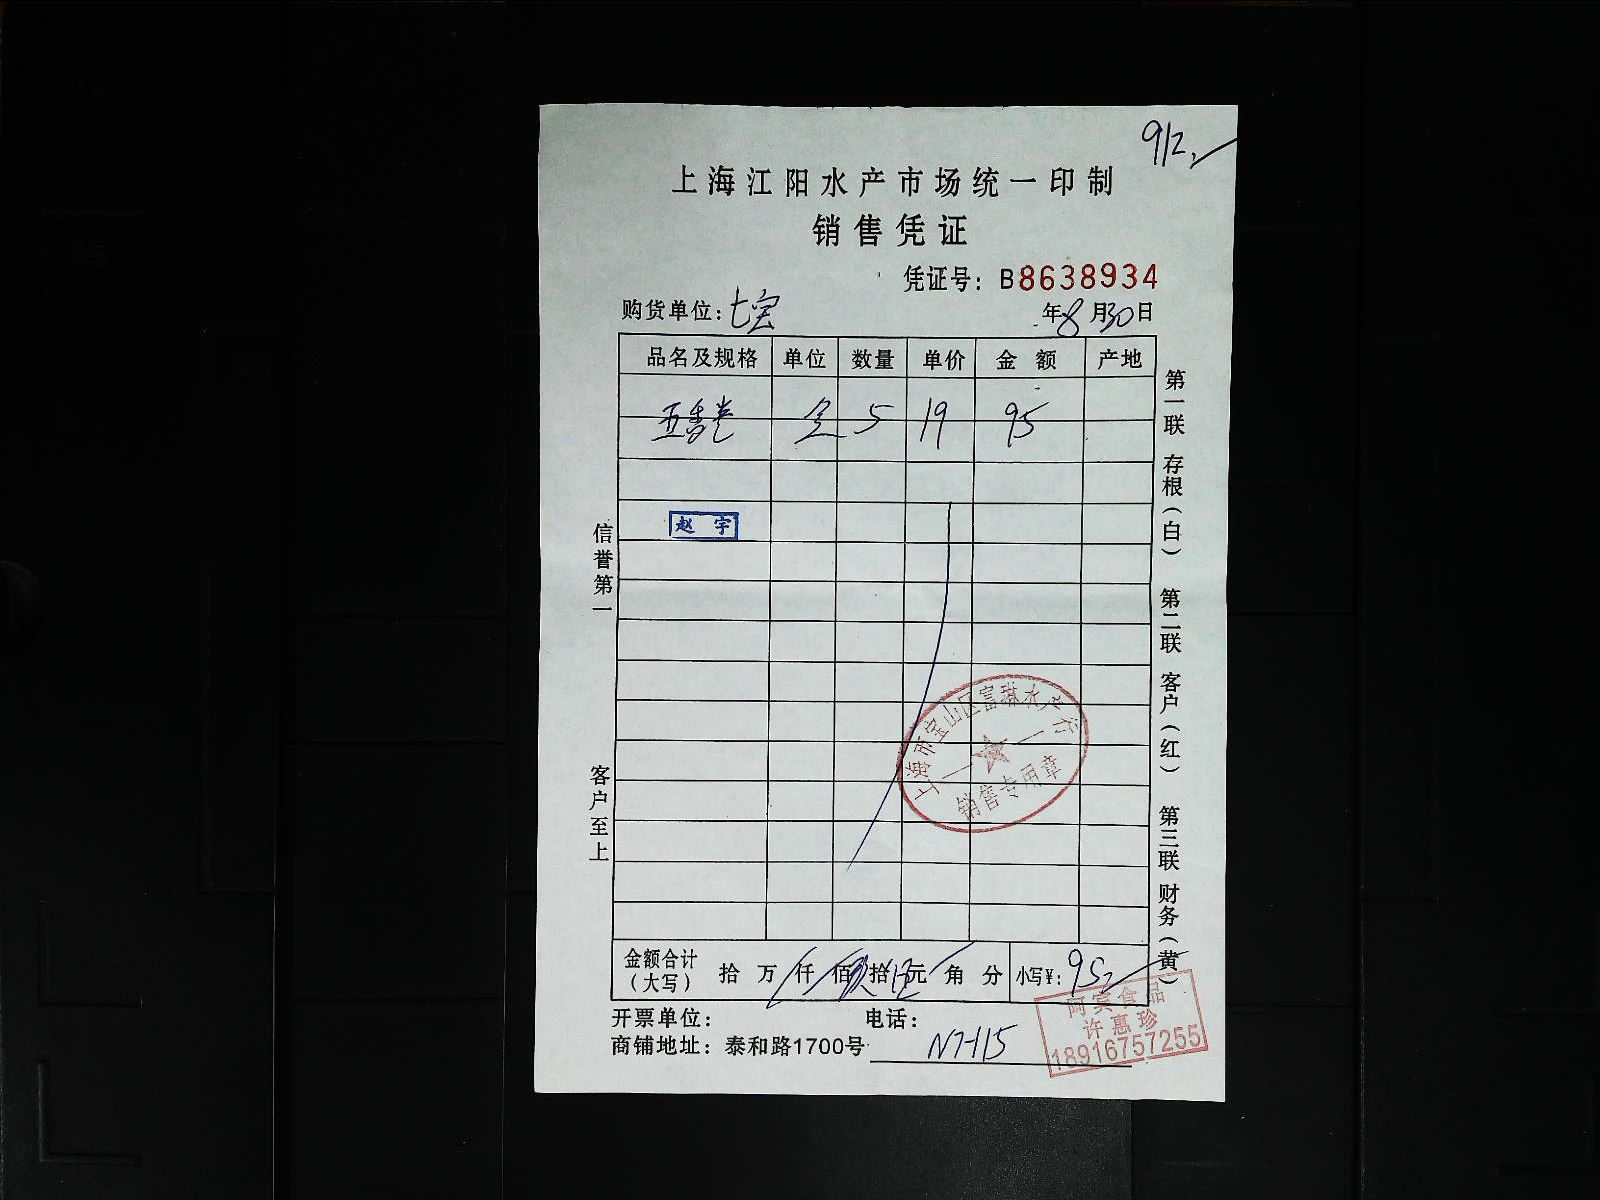 912
上海江阳水产市场统一印制
销售凭证
凭证号：B8638934
购货单位：七宝 年8月30日
品名及规格 单位 数量 单价 金额 产地
五香卷 5 19 95
赵宇
信誉第一
客户至上
第一联 存根（白） 第二联 客户（红） 第三联 财务（黄）
上海市宝山区富琳水产行
销售专用章
金额合计（大写） 拾 万 仟 佰玖拾伍元 角 分 小写¥：95
开票单位： 电话：
商铺地址：泰和路1700号 N7-115
阿宾食品
许惠珍
18916757255